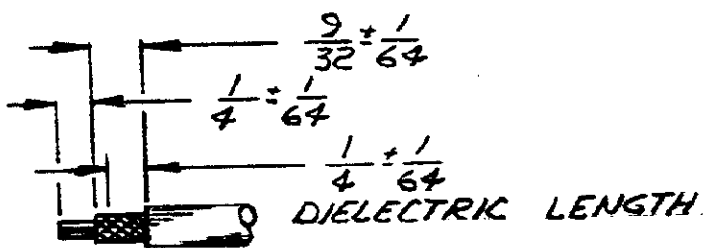 9/32 ± 1/64
1/4 ± 1/64
1/4 ± 1/64
DIELECTRIC LENGTH